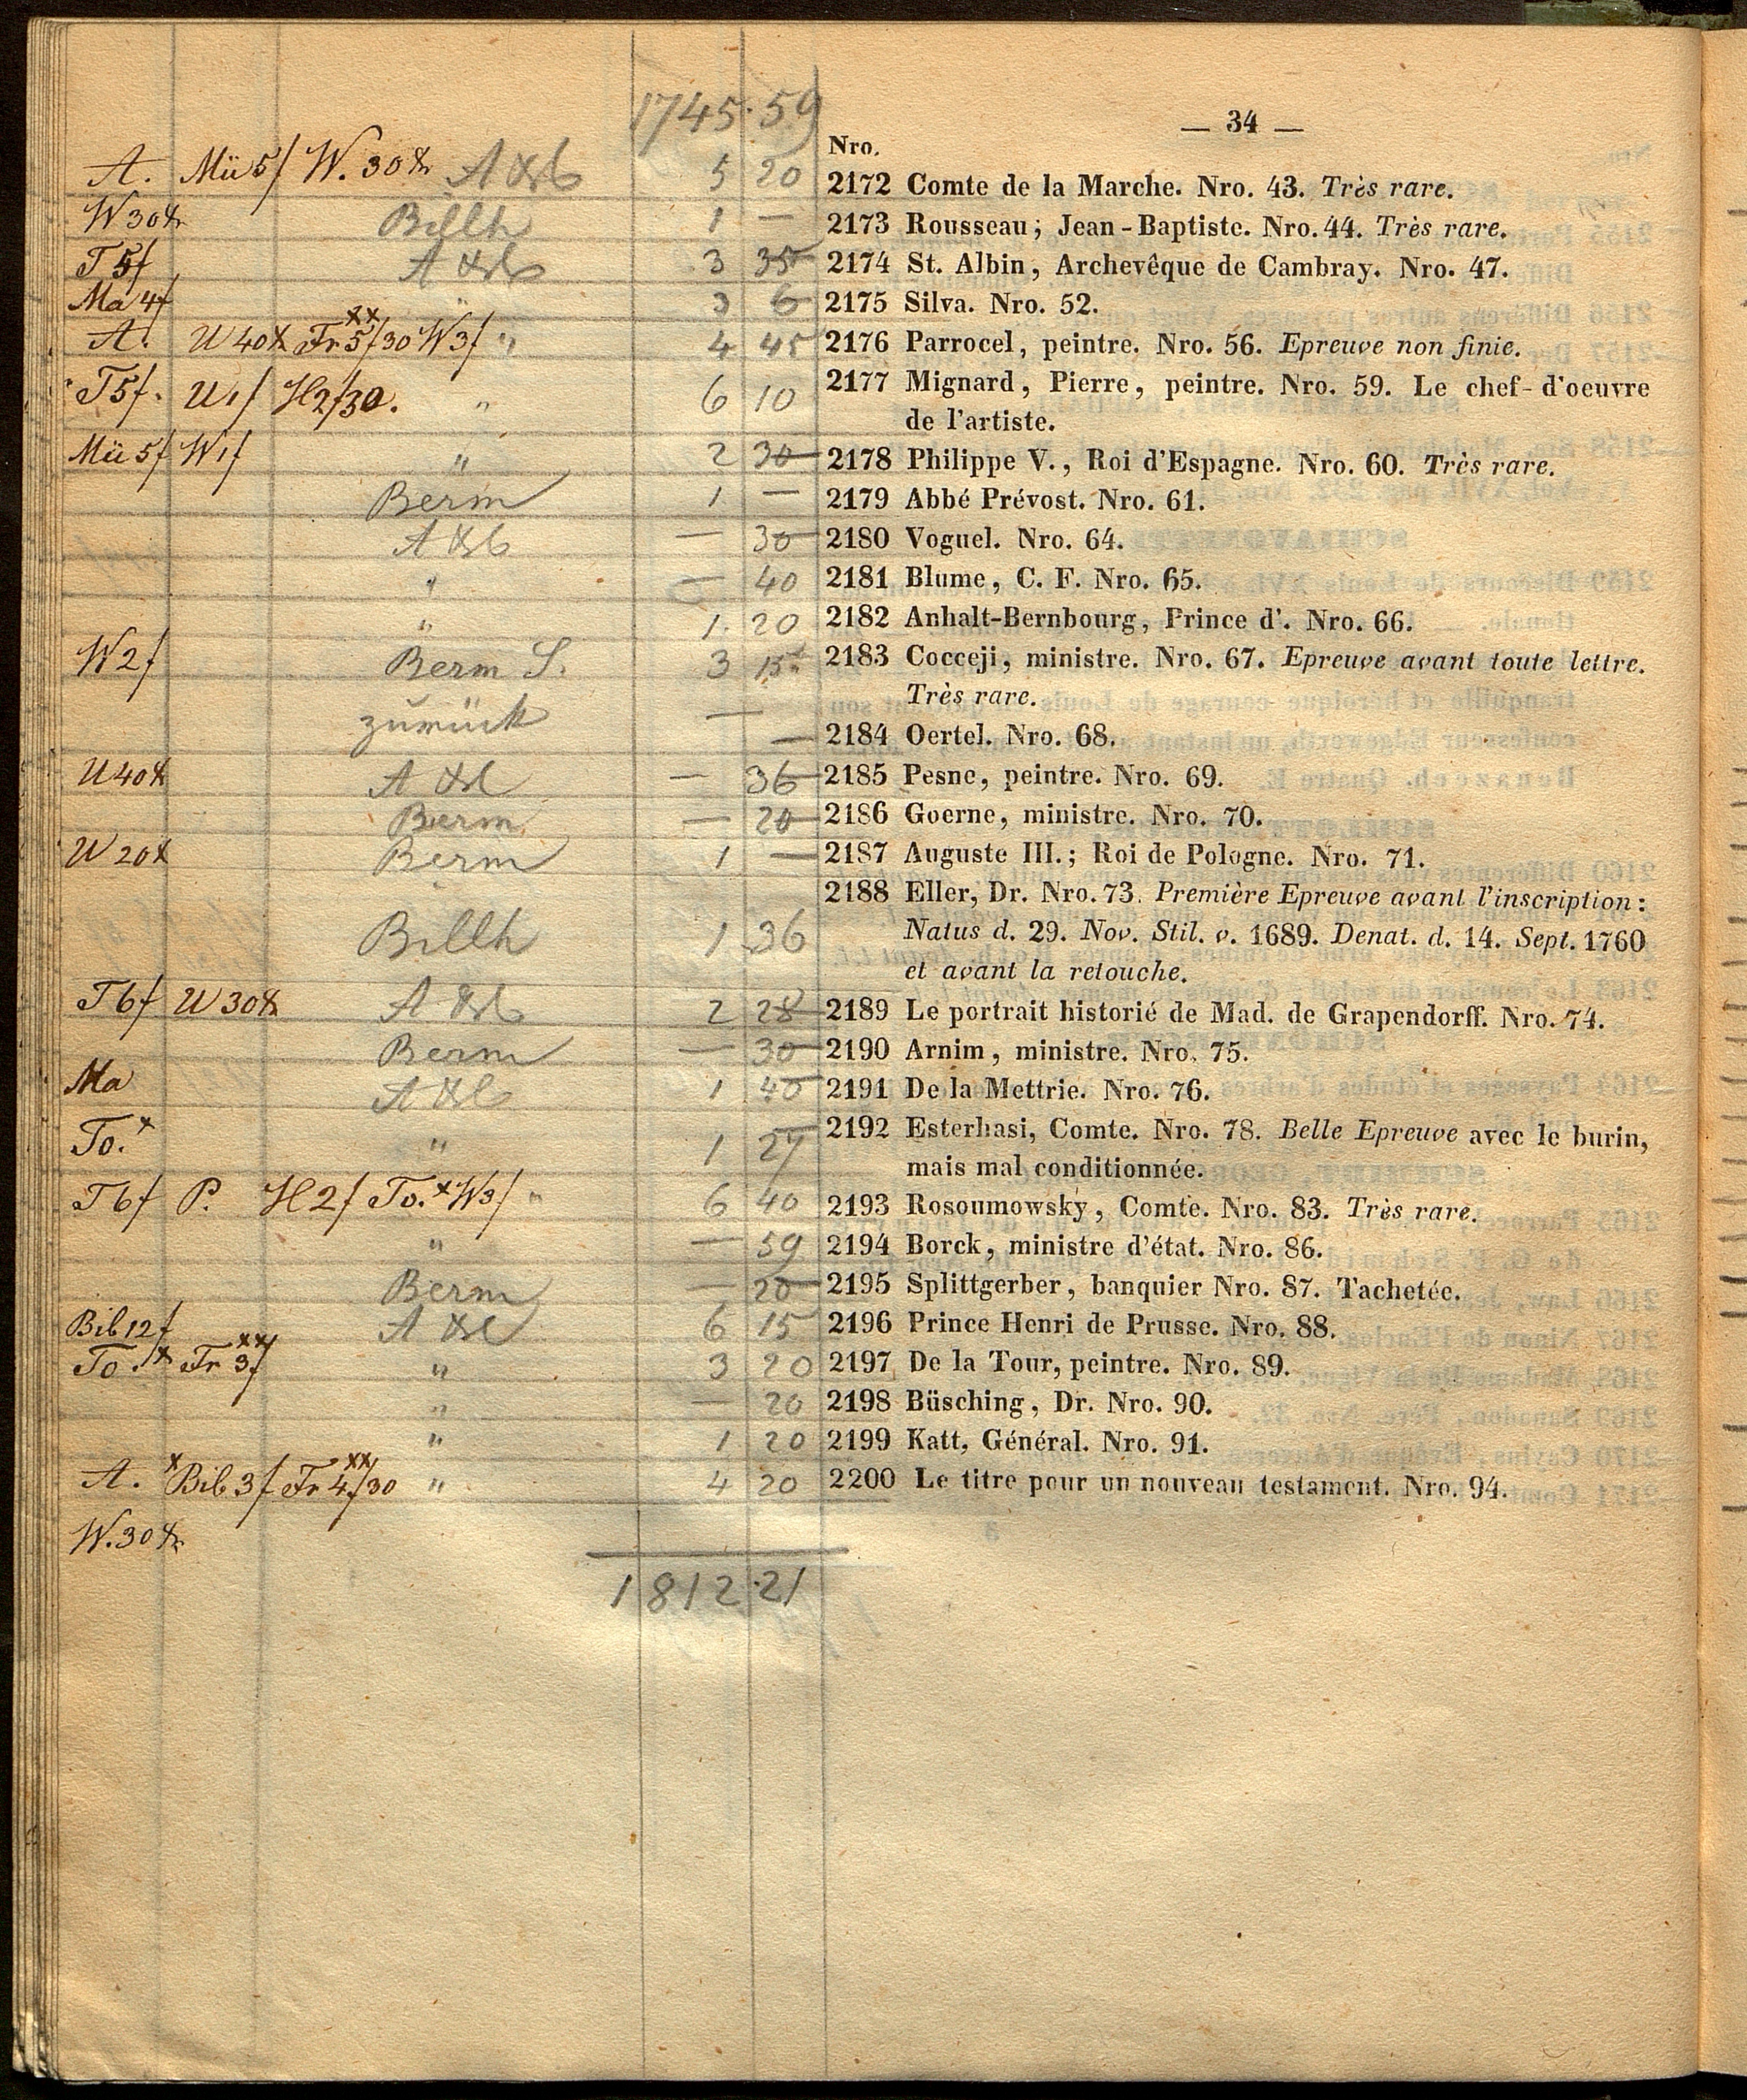 1745.59
— 34 —
Nro.
A. Mü 5f W. 30x 5 20 2172 Comte de la Marche. Nro. 43. Très rare.
W 30x Billh 1 — 2173 Rousseau; Jean-Baptiste. Nro. 44. Très rare.
T 5f 3 35 2174 St. Albin, Archevêque de Cambray. Nro. 47.
Ma 4f " 3 6 2175 Silva. Nro. 52.
A. U 40x Fr 5f/30 W 3f " 4 45 2176 Parrocel, peintre. Nro. 56. Epreuve non finie.
T 5f. U 1f H 2f/30. " 6 10 2177 Mignard, Pierre, peintre. Nro. 59. Le chef-d'oeuvre
de l'artiste.
Mü 5f W 1f " 2 30 2178 Philippe V., Roi d'Espagne. Nro. 60. Très rare.
Berm 1 — 2179 Abbé Prévost. Nro. 61.
— 30 2180 Voguel. Nro. 64.
" — 40 2181 Blume, C. F. Nro. 65.
" 1. 20 2182 Anhalt-Bernbourg, Prince d'. Nro. 66.
W 2f Berm S. 3 15 2183 Cocceji, ministre. Nro. 67. Epreuve avant toute lettre.
Très rare.
zurück — — 2184 Oertel. Nro. 68.
U 40x — 36 2185 Pesne, peintre. Nro. 69.
Berm — 20 2186 Goerne, ministre. Nro. 70.
W 20x Berm 1 — 2187 Auguste III.; Roi de Pologne. Nro. 71.
2188 Eller, Dr. Nro. 73. Première Epreuve avant l'inscription:
Billh 1 36 Natus d. 29. Nov. Stil. v. 1689. Denat. d. 14. Sept. 1760
et avant la retouche.
T 6f W 30x 2 28 2189 Le portrait historié de Mad. de Grapendorff. Nro. 74.
Berm — 30 2190 Arnim, ministre. Nro. 75.
Ma 1 40 2191 De la Mettrie. Nro. 76.
To. x " 1 27 2192 Esterhasi, Comte. Nro. 78. Belle Epreuve avec le burin,
mais mal conditionnée.
T 6f P. H 2f To. x W 3f " 6 40 2193 Rosoumowsky, Comte. Nro. 83. Très rare.
" — 59 2194 Borck, ministre d'état. Nro. 86.
Berm — 20 2195 Splittgerber, banquier Nro. 87. Tachetée.
Bib 12f 6 15 2196 Prince Henri de Prusse. Nro. 88.
To. x Fr xx 3f " 3 20 2197 De la Tour, peintre. Nro. 89.
" — 20 2198 Büsching, Dr. Nro. 90.
" 1 20 2199 Katt, Général. Nro. 91.
A. x Bib 3f Fr xx 4f/30 " 4 20 2200 Le titre pour un nouveau testament. Nro. 94.
W. 30x
1812.21